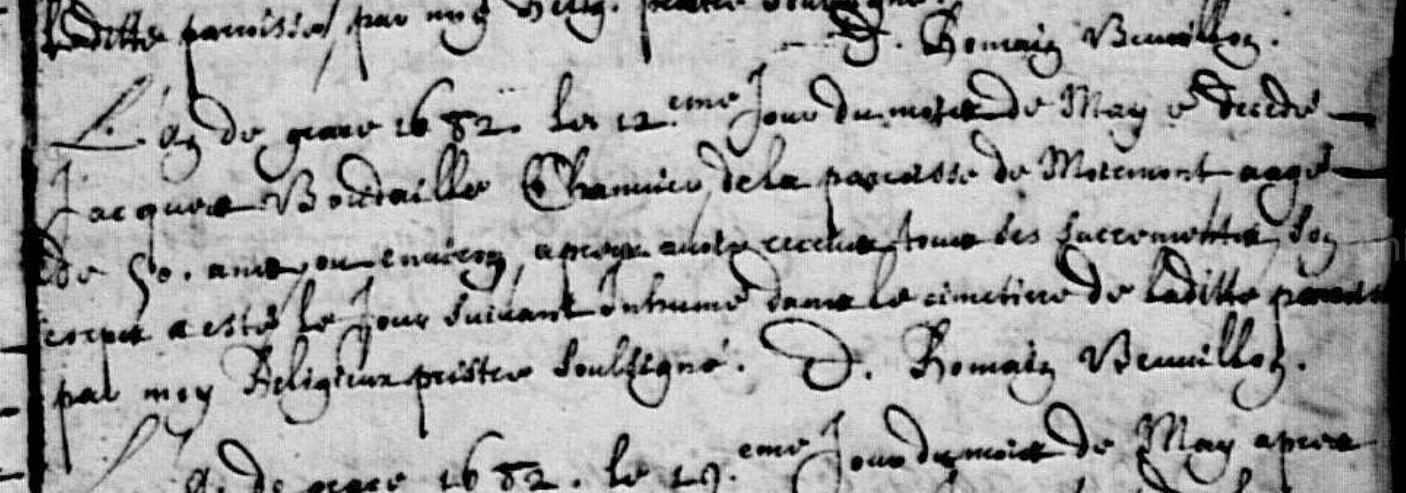 laditte paroisse par moy Relig. prestre soubsigné.
D. Romain Beuvillon.
L'an de grace 1682. le 12.eme Jour du mois de May e decedé
Jacques Boudaille de la paroisse de Moiremont aagé
de 50. ans ou environ, apres avoir receue tous les sacrements, son
corps a esté le Jour suivant Inhumé dans le cimetiere de laditte paroisse
par moy Religieux prestre soubsigné. D. Romain Beuvillon.
L'an de grace 1682. le 19.eme Jour du mois de May apres